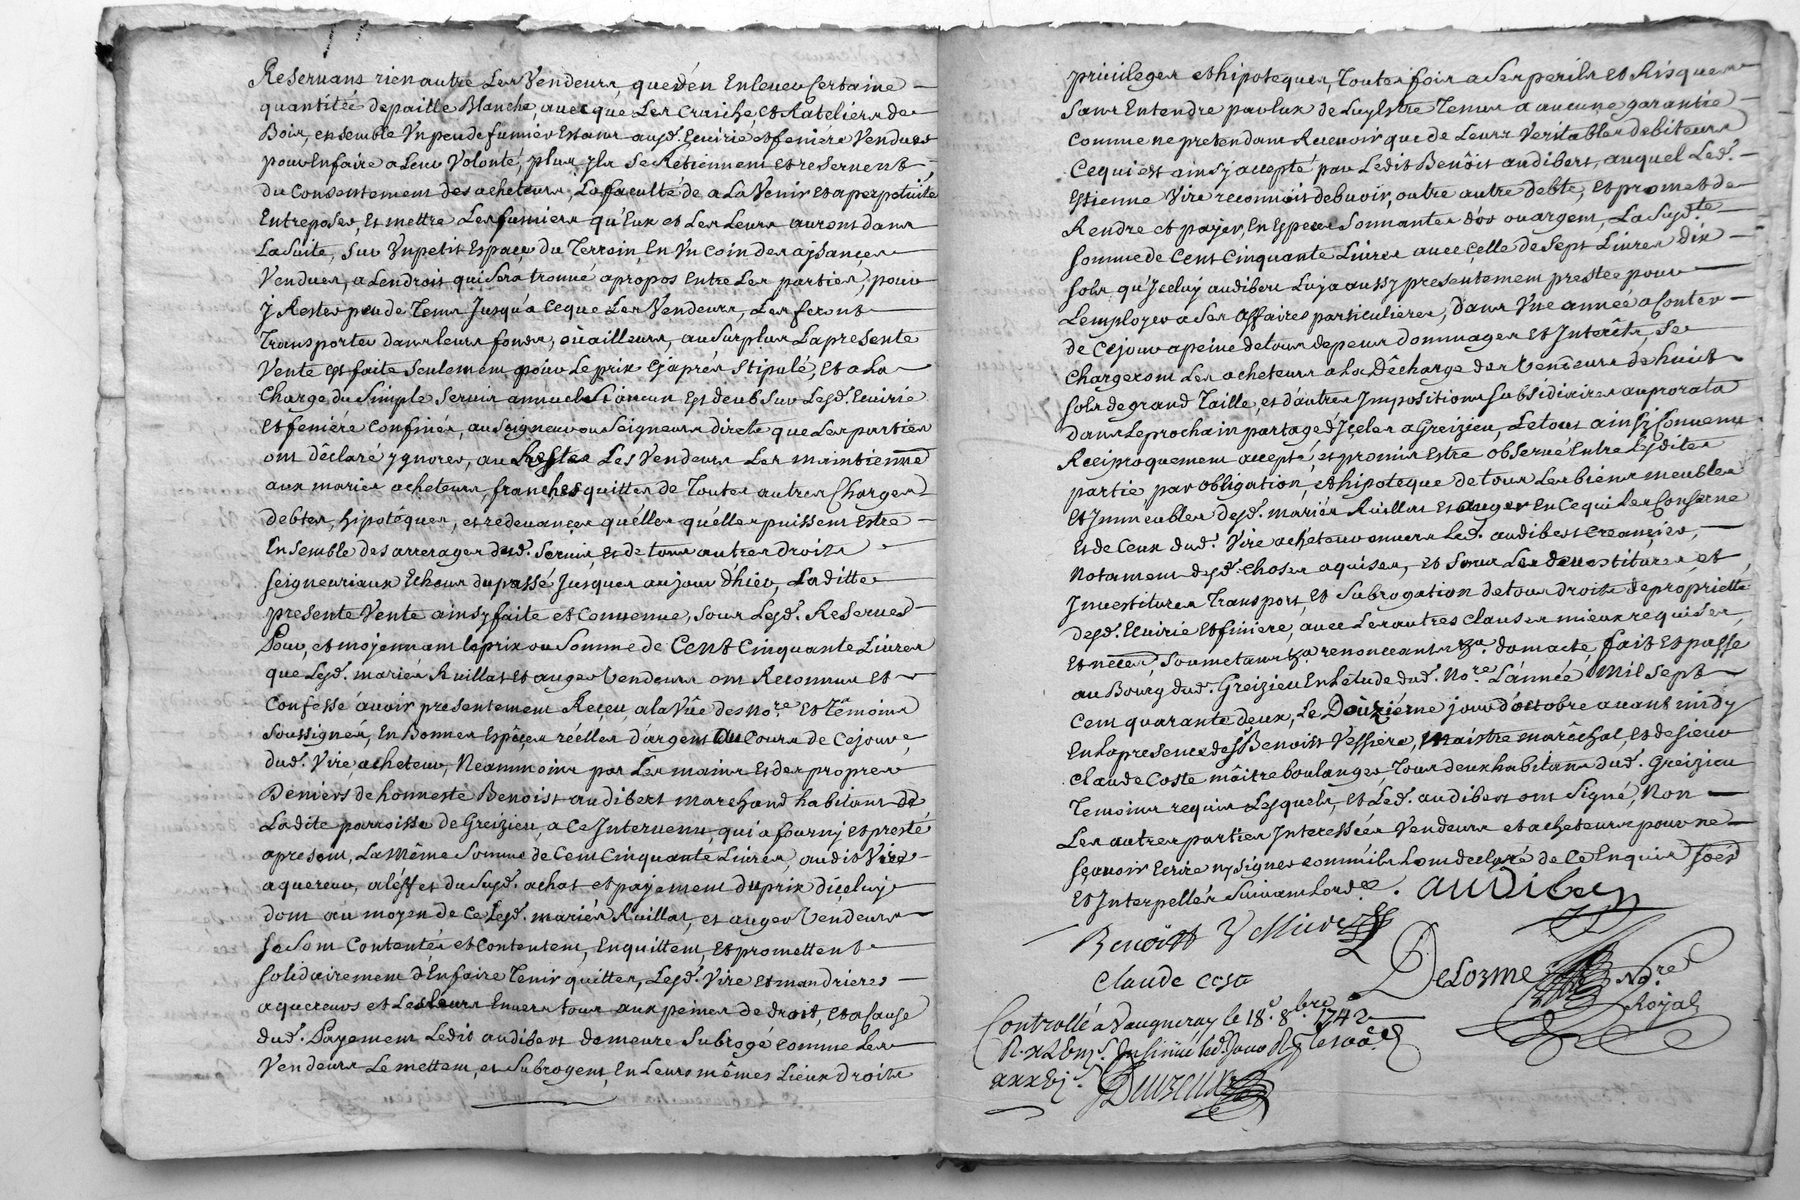 Reservans rien autre Les Vendeurs, que d'en Enlever Certaine
quantitée de paille Blanche, avecque Les Craiche et Rateliers de
Bois, ensemble Un peu de fumier Estans ausd. Ecuirie et feniére Vendues
pour En faire a Leur Volonté, plus Ils Se Retiennent et reservent
du Consentement des acheteurs, La faculté de a La Venir et a perpetuité
Entreposer, Et mettre Les fumiers qu'Eux et Les Leurs auront dans
La Suite, Sur Un petit Espace du Terroin, En Un Coin des aysances
Vendues, a Lendroit qui Sera trouvé apropos Entre Les parties, pour
y Rester peu de Tems Jusqu'a ceque Les Vendeurs, Les feront
Transporter dans leurs fonds, ou ailleurs, au Surplus La presente
Vente est faite Seulement pour Le prix Cy apres Stipulé, Et a La
Charge du Simple Servis annuel Si aucun Est deub Sur Lesd. Ecuirie
et feniére Confinés, au Seigneur ou Seigneurs directs que Les parties
ont déclaré ygnorer, au Reste Les Vendeurs Les maintienne
aux mariés acheteurs, franches quittes de Toutes autres Charges
debtes, hipotéques, et redevances qu'elles qu'elles puissent Estre
Ensemble des arrerages dud. Servis, et de tous autres droits
seigneuriaux Echeus du passé Jusques au jour d'hier, Laditte
presente Vente ainsy faite et Convenue, Sous Lesd. Reserves
Pour, et moyennant le prix ou Somme de Cent Cinquante Livres
que Lesd. mariés Ruillat et auger Vendeurs ont Reconnus et
Confessé avoir presentement Reçeu, a la Vûe des No.re Et Témoins
Soussignés, En Bonnes Espêces réelles d'argent au Cours de Cejour,
dud. Vire, acheteur, Neanmoins par Les mains Et des propres
Deniers de honneste Benoist audibert marchand habitant de
La dite parroisse de Greizieu, a Ce Intervenu, qui a fourny et presté
apresent, La Même Somme de Cent Cinquante Livres, audit Vire
aquereur, a léffet du Susd. achat et payement du prix d'içeluy
dont au moyen de ce Lesd. mariés Ruillat, et auger Vendeurs
Se Sont Contentés et Contentent, En quittent, Et promettent
solidairement d'En faire Tenir quittes, Lesd. Vire Et mandrieres
aquereurs et Les Leurs Envers tous aux peines de droit, et a Cause
dud. Payement Ledit audibert demeure Subrogé Comme Les
Vendeurs Le mettent, et Subrogent, En Leurs mêmes Lieux Droits
privileges et hipoteques, Toutes fois a Ses perils et Risques
Sans Entendre par Eux de Luy Estre Tenus a aucune garantie
Comme ne pretendans Recevoir que de Leurs Veritables debiteurs
Ce qui est ainsy accepté par Ledit Benôit audibert, auquel Led.
Estienne Vire reconnoit debvoir, outre autre debte, et promet de
Rendre et payer, En Espece Sonnantes d'or ou argent, La Susd.te
Somme de Cent Cinquante Livres avec Celle de Sept Livres dix
Sols qu'Iceluy audibert Luy a aussy presentement prestée pour
Lemployer a Ses affaires particulieres, Dans Une année a Conter
de Cejour a peine de tous depens dommages et Interêts, Se
Chargeront Les acheteurs a La Décharge des Vendeurs de huict
Sols de grand Taille, et d'autres Impositions Subsidiaires au prorata
dans Le prochain partage d'Içelles a Greizieu, Le tout ainsy Convenu
Reciproquement accepté, et promis Estre observé Entre Lesdites
partie par obligation, et hipoteque de tous Les biens meubles
et Immeubles desd. mariés Ruillat et auger En Ce qui Les Conserne
et de Ceux dud. Vire acheteur envers Led. audibert Creancier,
Notament desd. choses aquises, et Sous Les devestitures et
Investitures Transport, et Subrogation de tous droits de proprieté
desd. Ecuirie Et finiere, avec Les autres Clauses mieux requises,
et neces. Soumetans &a. renonceants &a. dont acte, fait et passe
au Bourg dud. Greizieu En Létude dud. No.re L'année Mil Sept
Cent quarante deux, Le Douziéme jour d'octobre avant midy
En La presence de S.r Benoist Vessiere, Maistre maréchal, et de Sieur
Claude Coste maître boulanger, Tous deux habitans dud. Greizieu
Temoins requis Lesquels, et Led. audibert ont Signé, Non
Les autres parties Interessées Vendeurs et acheteurs pour ne
Sçavoir Ecrire ny Signer comm'ils L'ont declaré de Ce Enquis
Et Interpellés Suivant Lord.ce. audibert
Benoist Vessiere
Claude Costa
Delorme No.re
Royal
Controllé a Vaugneray le 18.e 8.bre 1742